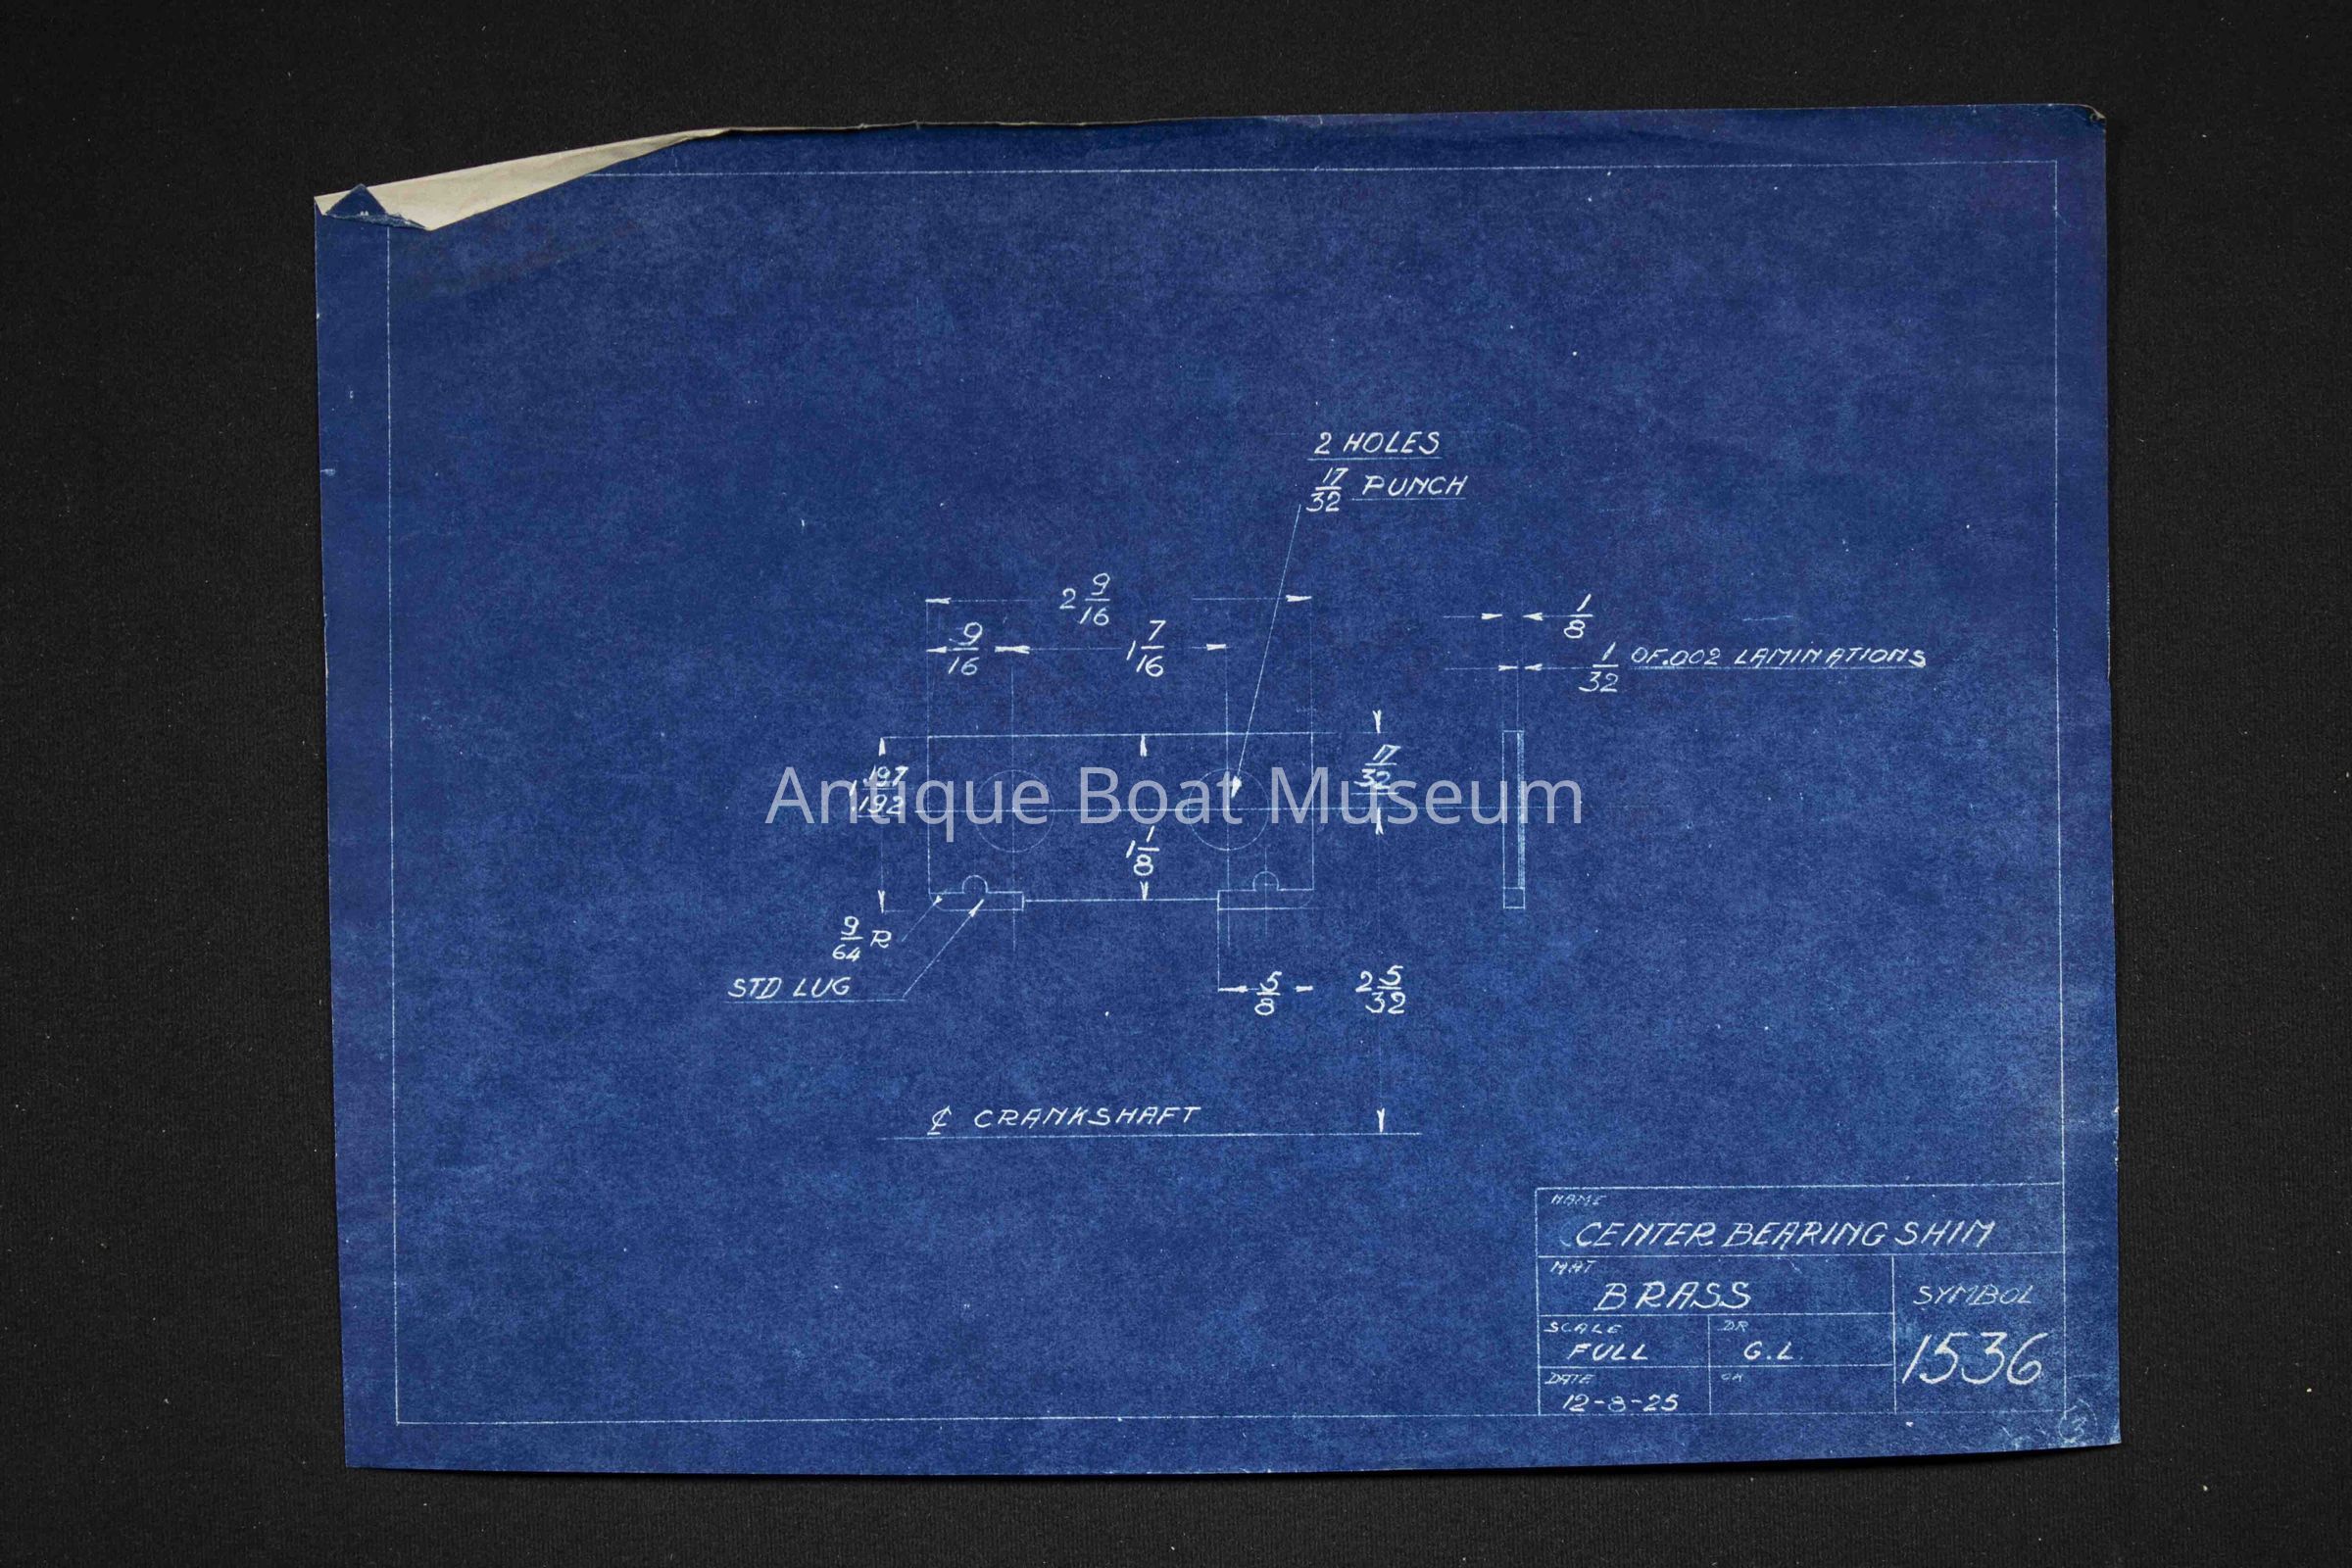 2 HOLES
17/32 PUNCH
2 9/16
9/16
1 7/16
1/8
1/32 OF .002 LAMINATIONS
17/32
1.197
1.192
Antique Boat Museum
1 1/8
9/64 R
STD LUG
5/8
2 5/32
℄ CRANKSHAFT
NAME
CENTER BEARING SHIM
MAT
BRASS
SYMBOL
1536
SCALE
FULL
DR
G.L.
DATE
12-8-25
CK
3